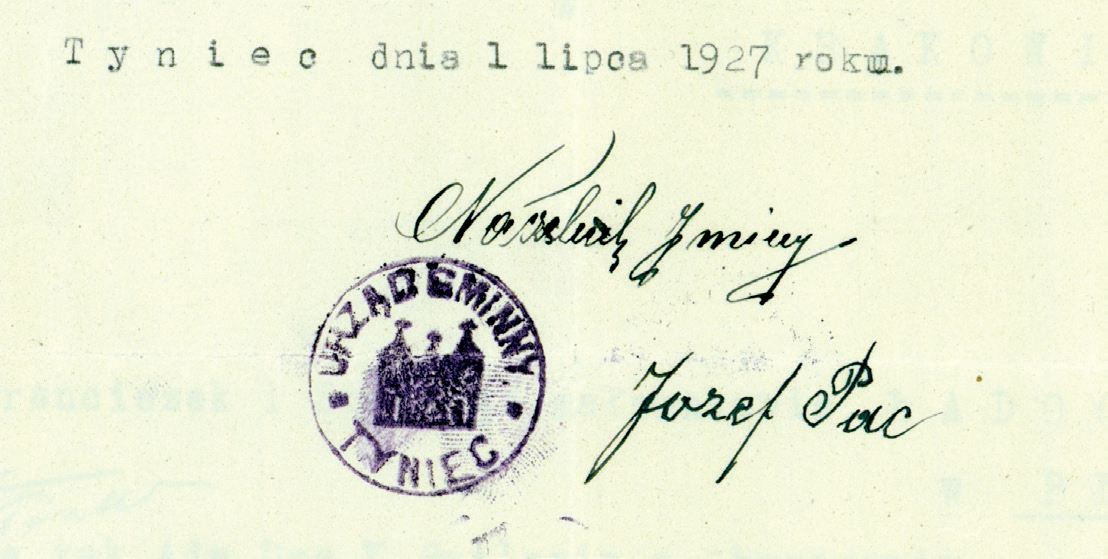 Tyniec dnia 1 lipca 1927 roku.
Naczelnik Gminy
URZĄD GMINNY
TYNIEC
Jozef Pac